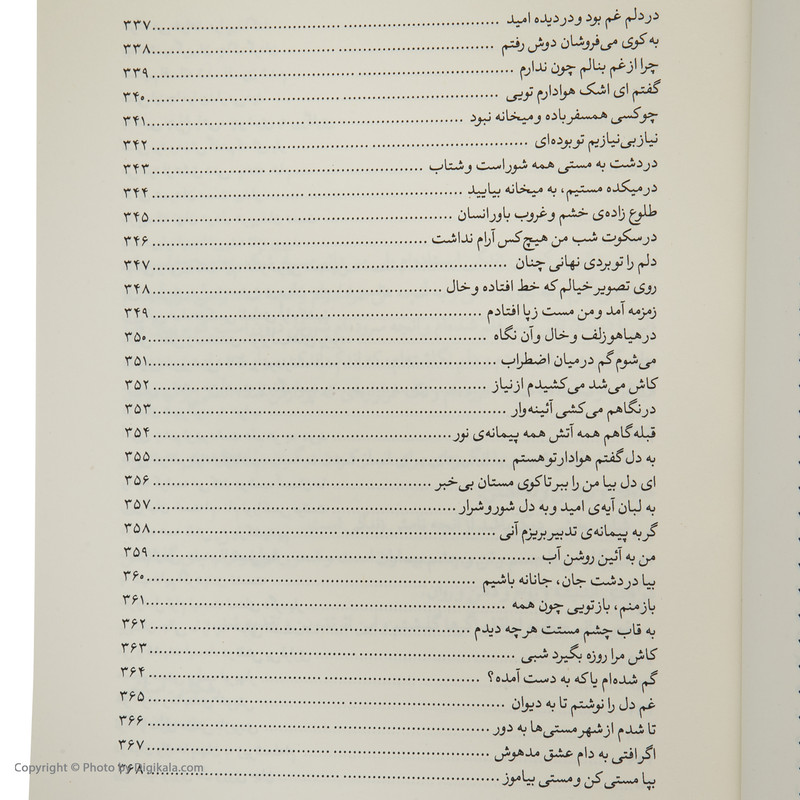 در دلم غم بود و در دیده امید ........ ۳۳۷
به کوی می‌فروشان دوش رفتم ........ ۳۳۸
چرا از غم بنالم چون ندارم ........ ۳۳۹
گفتم ای اشک هوادارم تویی ........ ۳۴۰
چو کسی همسفر باده و میخانه نبود ........ ۳۴۱
نیاز بی‌نیازیم تو بوده‌ای ........ ۳۴۲
در دشت به مستی همه شور است و شتاب ........ ۳۴۳
در میکده مستیم، به میخانه بیایید ........ ۳۴۴
طلوع زاده‌ی خشم و غروب باور انسان ........ ۳۴۵
در سکوت شب من هیچ‌کس آرام نداشت ........ ۳۴۶
دلم را تو بردی نهانی چنان ........ ۳۴۷
روی تصویر خیالم که خط افتاده و خال ........ ۳۴۸
زمزمه آمد و من مست ز پا افتادم ........ ۳۴۹
در هیاهو زلف و خال و آن نگاه ........ ۳۵۰
می‌شوم گم در میان اضطراب ........ ۳۵۱
کاش می‌شد می‌کشیدم از نیاز ........ ۳۵۲
در نگاهم می‌کشی آئینه‌وار ........ ۳۵۳
قبله‌گاهم همه آتش همه پیمانه‌ی نور ........ ۳۵۴
به دل گفتم هوادار تو هستم ........ ۳۵۵
ای دل بیا من را ببر تا کوی مستان بی‌خبر ........ ۳۵۶
به لبان آیه‌ی امید و به دل شور و شرار ........ ۳۵۷
گر به پیمانه‌ی تدبیر بریزم آنی ........ ۳۵۸
من به آئین روشن آب ........ ۳۵۹
بیا در دشت جان، جانانه باشیم ........ ۳۶۰
باز منم، باز تویی چون همه ........ ۳۶۱
به قاب چشم مستت هر چه دیدم ........ ۳۶۲
کاش مرا روزه بگیرد شبی ........ ۳۶۳
گم شده‌ام یا که به دست آمده؟ ........ ۳۶۴
غم دل را نوشتم تا به دیوان ........ ۳۶۵
تا شدم از شهر مستی‌ها به دور ........ ۳۶۶
اگر افتی به دام عشق مدهوش ........ ۳۶۷
بیا مستی کن و مستی بیاموز ........ ۳۶۸
Copyright © Photo by Digikala.com